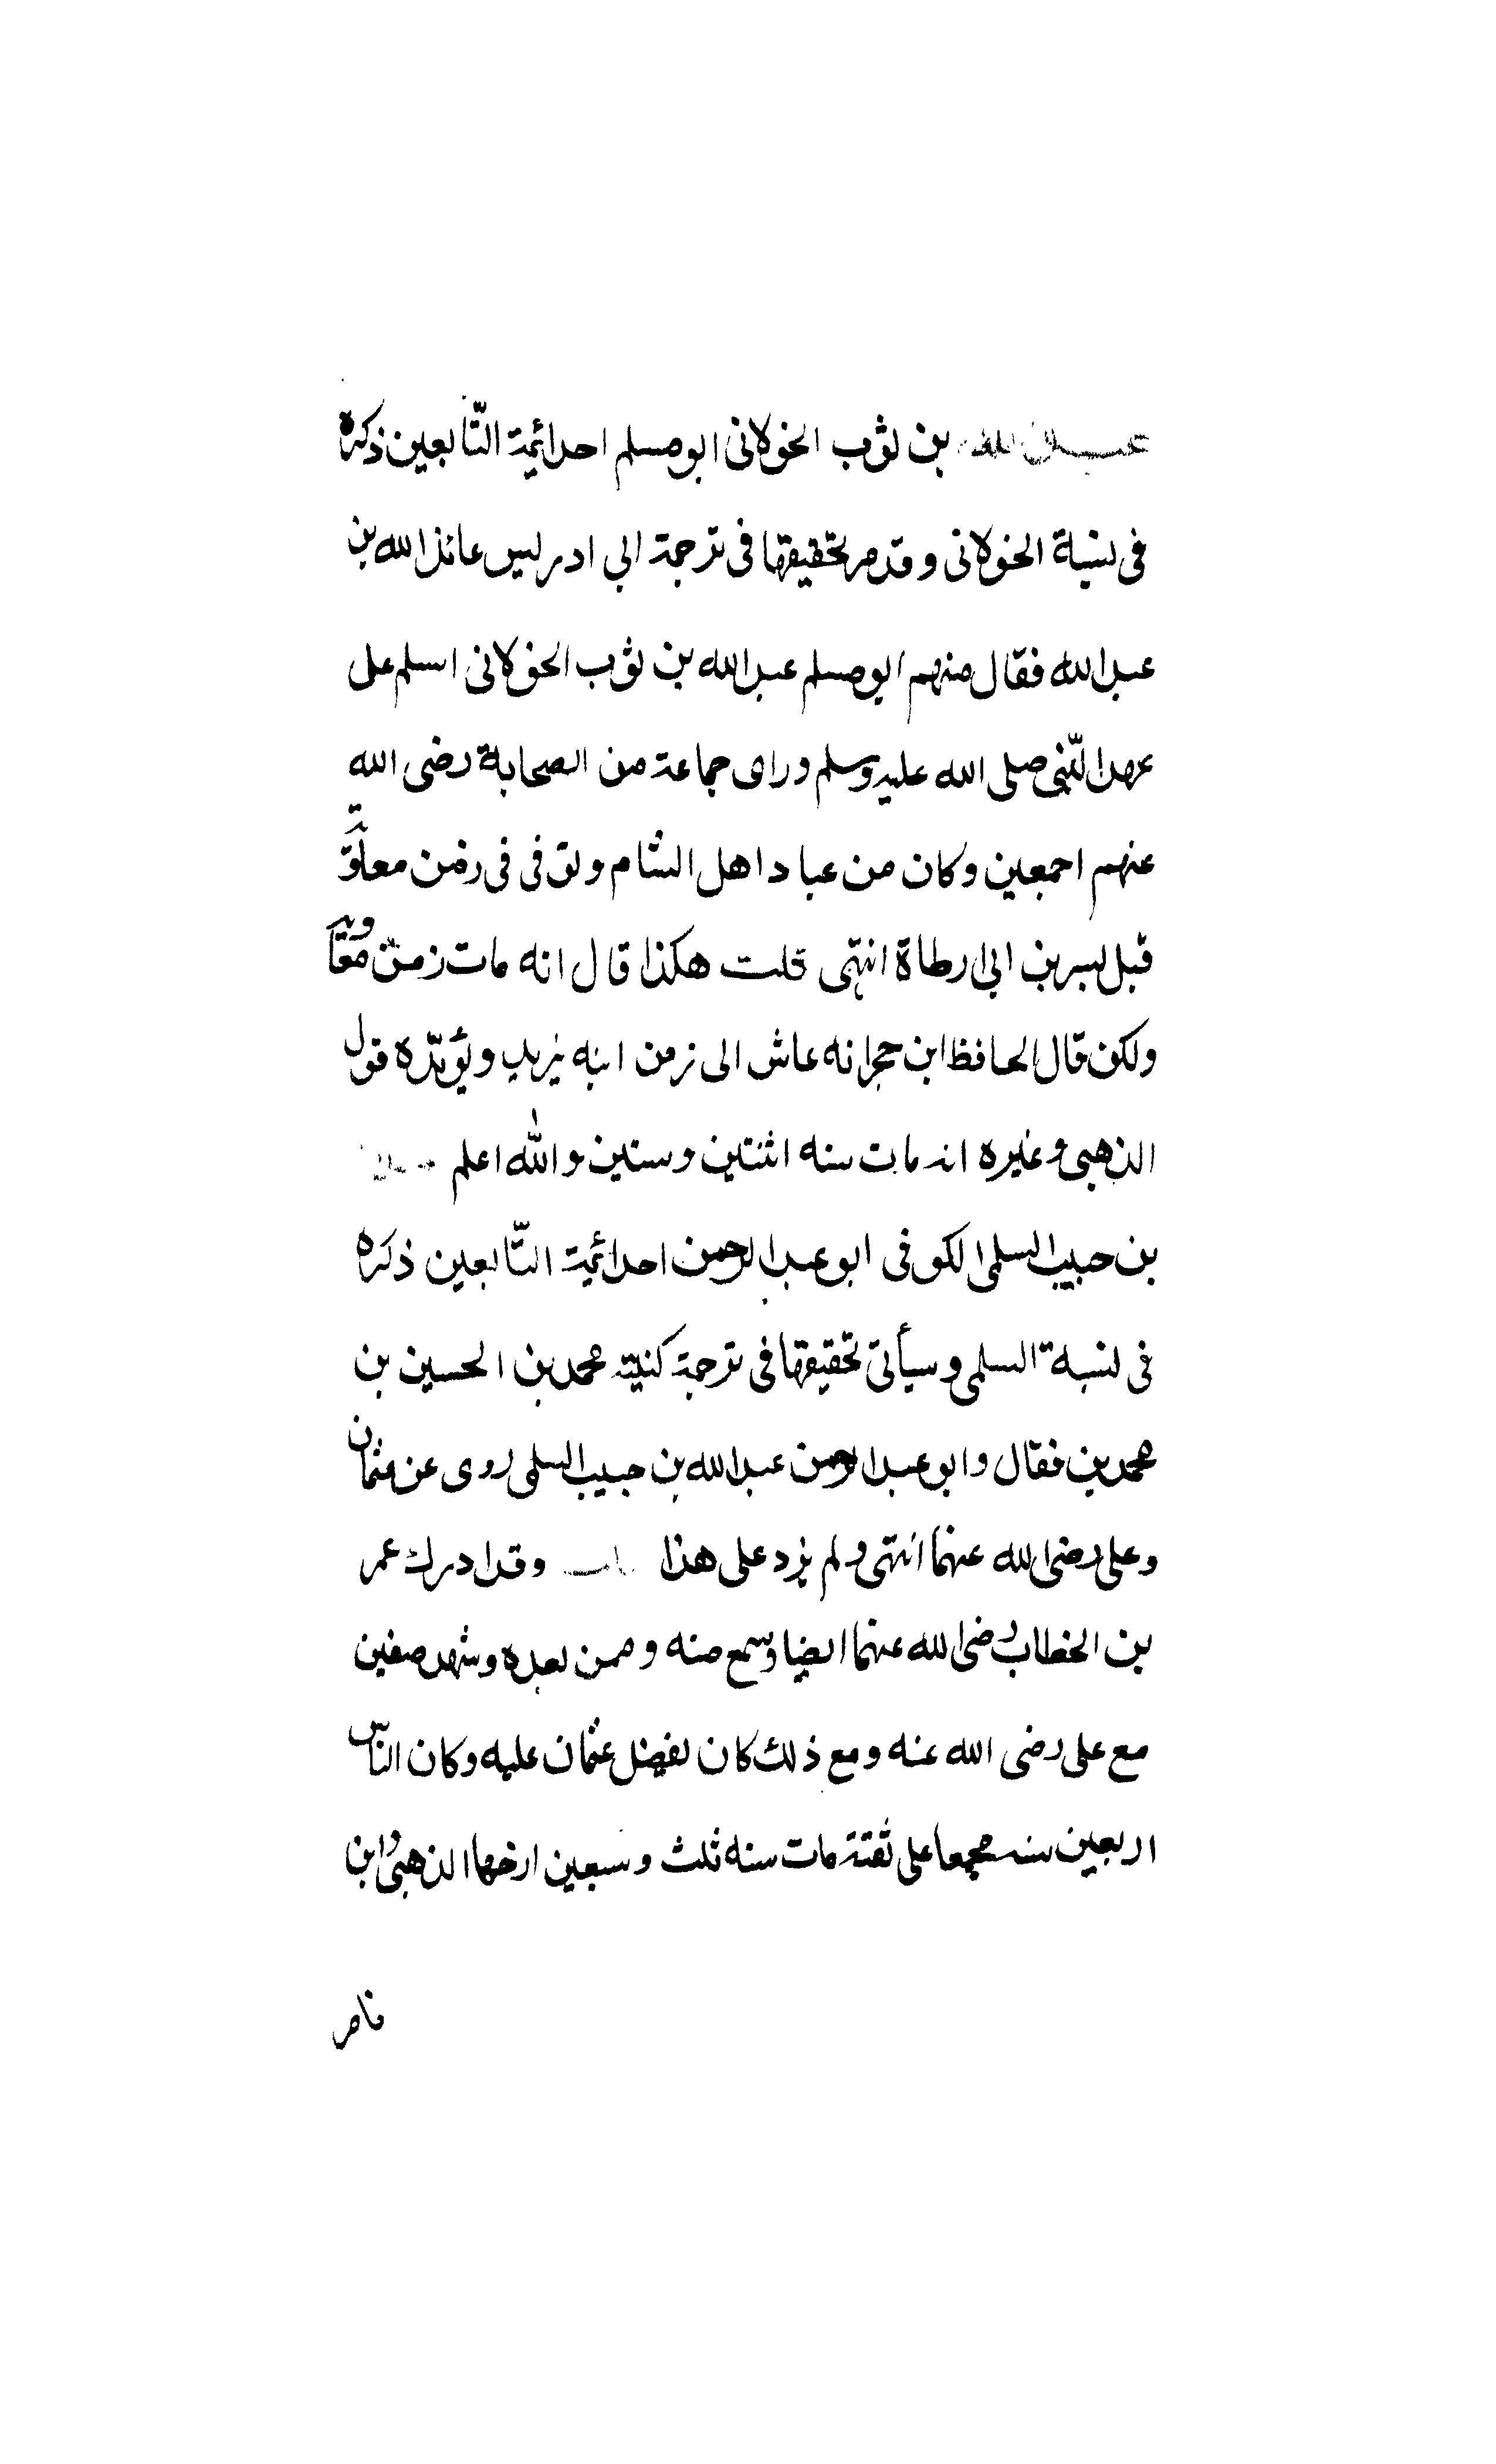 عبد الله بن ثوب الخولانى ابو مسلم احد ائمة التّابعين ذكره
فى نسبة الخولانى وقد مر تحقيقها فى ترجمة ابي ادريس عائذ الله بن
عبد الله فقال منهم ابو مسلم عبد الله بن ثوب الخولانى اسلم على
عهد النّبى صلى الله عليه وسلم وراى جماعة من الصحابة رضى الله
عنهم اجمعين وكان من عباد اهل الشام وتوفى فى زمن معاوية
قبل بسر بن ابى ارطاة انتهى قلت هكذا قال انه مات زمن معاوية
ولكن قال الحافظ ابن حجر انه عاش الى زمن ابنه يزيد ويؤيّده قول
الذهبى وغيره انه مات سنه اثنتين وستين والله اعلم
بن حبيب السلمى الكوفى ابو عبد الرحمن احد ائمة التّابعين ذكره
فى نسبة السلمى وسيأتى تحقيقها فى ترجمة كنيته محمد بن الحسين بن
محمد بن فقال وابو عبد الرحمن عبد الله بن حبيب السلمى روى عن عثمان
وعلى رضى الله عنهما انتهى ولم يزد على هذا وقد ادرك عمر
بن الخطاب رضى الله عنهما ايضا وسمع منه وممن بعده وشهد صفين
مع على رضى الله عنه ومع ذلك كان يفضل عثمان عليه وكان النّاس
اربعين سنه مجمعا على ثقته مات سنه ثلث وسبعين ارخها الذهبى وابن
ناصر